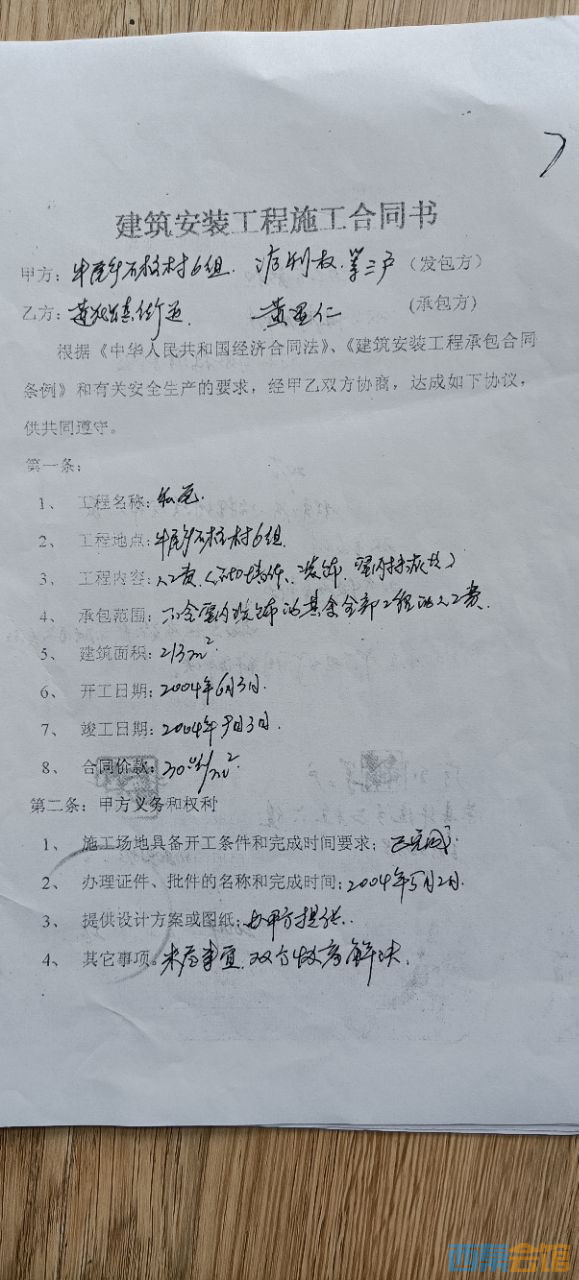 建筑安装工程施工合同书
甲方：石柱村6组 第三户（发包方）
乙方：街道 黄（承包方）
根据《中华人民共和国经济合同法》、《建筑安装工程承包合同
条例》和有关安全生产的要求，经甲乙双方协商，达成如下协议，
供共同遵守。
第一条：
1、 工程名称：私宅
2、 工程地点：石柱村6组
3、 工程内容：人工费
4、 承包范围：不含室内装饰的其余全部工程的人工费
5、 建筑面积：213m²
6、 开工日期：2004年6月3日
7、 竣工日期：2004年9月3日
8、 合同价款：/m²
第二条：甲方义务和权利
1、 施工场地具备开工条件和完成时间要求；已完成
2、 办理证件、批件的名称和完成时间：2004年5月2日
3、 提供设计方案或图纸：由甲方提供
4、 其它事项。未尽事宜，双方协商解决。
西祠会馆